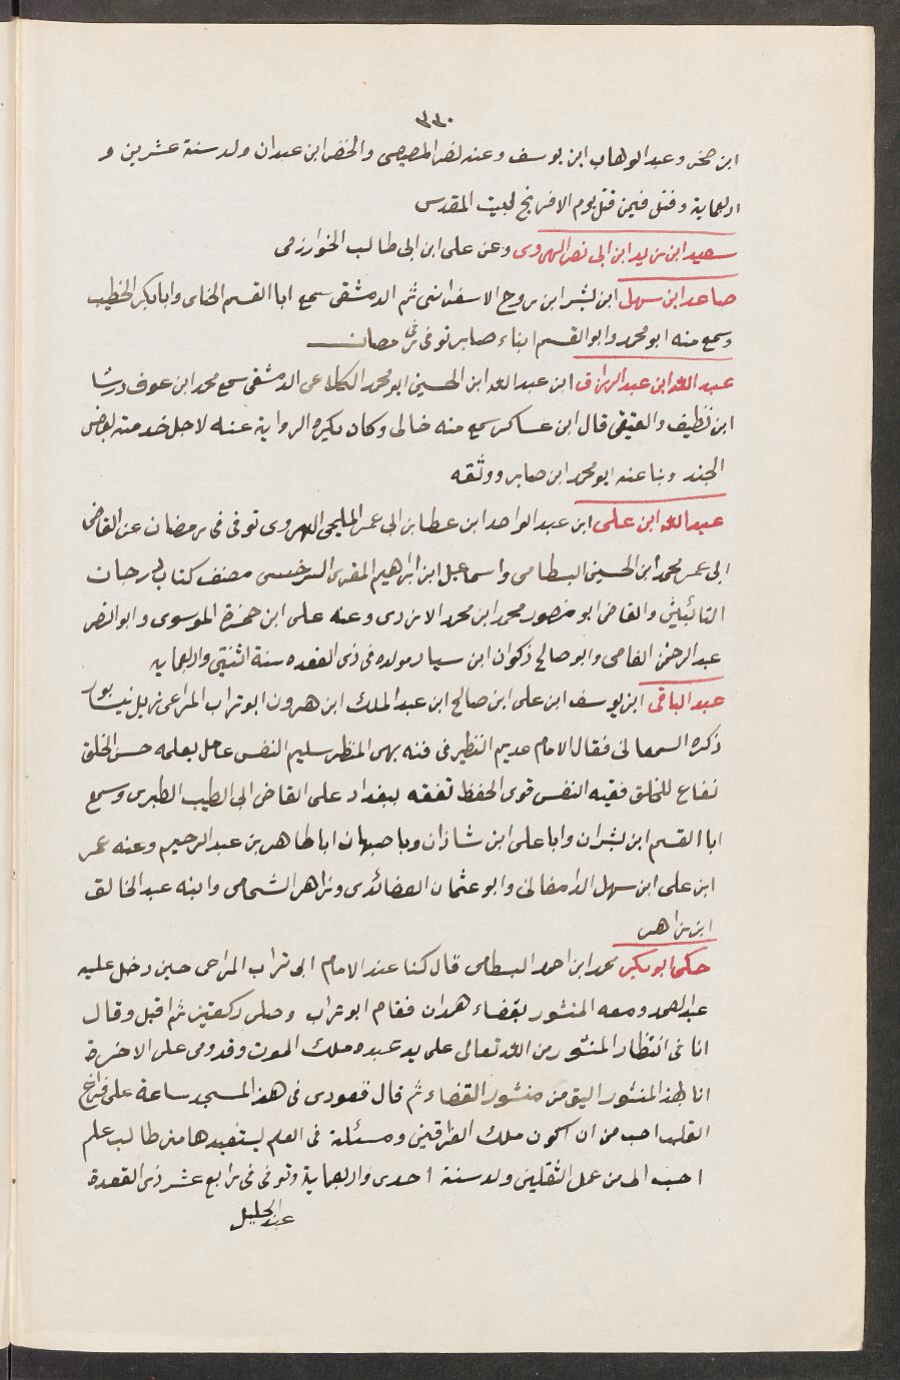 ٣٣٠
ابن صخر وعبد الوهاب ابن يوسف وعنه نصر المصيصى والخضر ابن عبدان ولد سنة عشرين و
اربعماية وقتل فيمن قتل يوم الافرنج لبيت المقدس
سعيد ابن يزيد ابن ابى نصر الهروى وعن على ابن ابى طالب الخوارزمى
صاعد ابن سهل ابن بشر ابن روح الاسفرانى ثم الدمشقى سمع ابا القسم الحناى وابابكر الخطيب
وسمع منه ابو محمد وابو القسم ابناء صابر توفى فى رمضان
عبد الله ابن عبد الرزاق ابن عبد الله ابن الحسين ابو محمد الكلاعى الدمشقى سمع محمد ابن عوف ورشا
ابن نظيف والعتيقى قال ابن عساكر سمع منه خالى وكان يكره الرواية عنه لاجل خدمته لبعض
الجند وبنا عنه ابو محمد ابن صابر ووثقه
عبد الله ابن على ابن عبد الواحد ابن عطا بن ابى عمر المليحى الهروى توفى فى رمضان عن القاضى
ابى عمر محمد ابن الحسين البسطامى واسماعيل ابن ابراهيم المقرى السرخسى مصنف كتاب درجات
التائبين والقاضى ابو منصور محمد ابن محمد الازدى وعنه على ابن حمزة الموسوى وابو النصر
عبد الرحمن الفامى وابو صالح ذكوان ابن سيار مولده فى ذى القعده سنة اثنتين واربعمايه
عبد الباقى ابن يوسف ابن على ابن صالح ابن عبد الملك ابن هرون ابو تراب المراعى نزيل نيسابور
ذكره السمعانى فقال الامام عديم النظير فى فنه بهى المنظر سليم النفس عامل بعلمه حسن الخلق
نفاع للخلق فقيه النفس قوى الحفظ تفقه ببغداد على القاضى ابى الطيب الطبرى وسمع
ابا القسم ابن بشران وابا على ابن شاذان وباصبهان ابا طاهر بن عبد الرحيم وعنه عمر
ابن على ابن سهل الدامغانى وابو عثمان العضائدى وزاهر الشحامى وابنه عبد الخالق
ابن زاهر
حكى ابو بكر محمد ابن احمد البسطامى قال كنا عند الامام ابى تراب المراعى حين دخل عليه
عبد الصمد ومعه المنشور بقضاء همدان فقام ابو تراب وصلى ركعتين ثم اقبل وقال
انا فى انتظار المنشور من الله تعالى على يد عبده ملك الموت وقدومى على الاخرة
انا بهذا المنشور اليق من منشور القضاء ثم قال قعودى فى هذا المسجد ساعة على فراغ
القلب احب من ان اكون ملك العراقين ومسئلة فى العلم يستفيدها من طالب علم
احب الى من عمل الثقلين ولد سنة احدى واربعماية وتوفى فى رابع عشر ذى القعدة
عبد الجليل